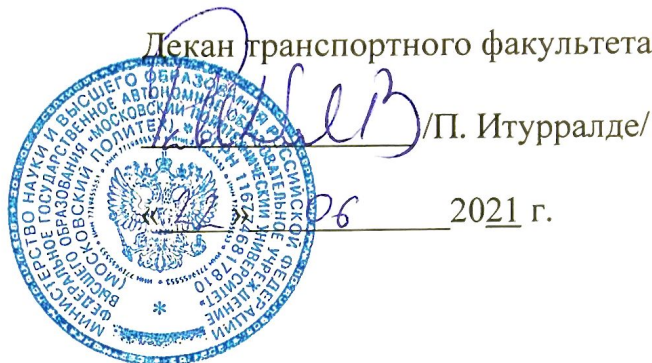 Декан транспортного факультета
/П. Итурралде/
« 22 » 06 2021 г.
МИНИСТЕРСТВО НАУКИ И ВЫСШЕГО ОБРАЗОВАНИЯ РОССИЙСКОЙ ФЕДЕРАЦИИ
ФЕДЕРАЛЬНОЕ ГОСУДАРСТВЕННОЕ АВТОНОМНОЕ ОБРАЗОВАТЕЛЬНОЕ УЧРЕЖДЕНИЕ
ВЫСШЕГО ОБРАЗОВАНИЯ «МОСКОВСКИЙ ПОЛИТЕХНИЧЕСКИЙ УНИВЕРСИТЕТ»
(МОСКОВСКИЙ ПОЛИТЕХ)